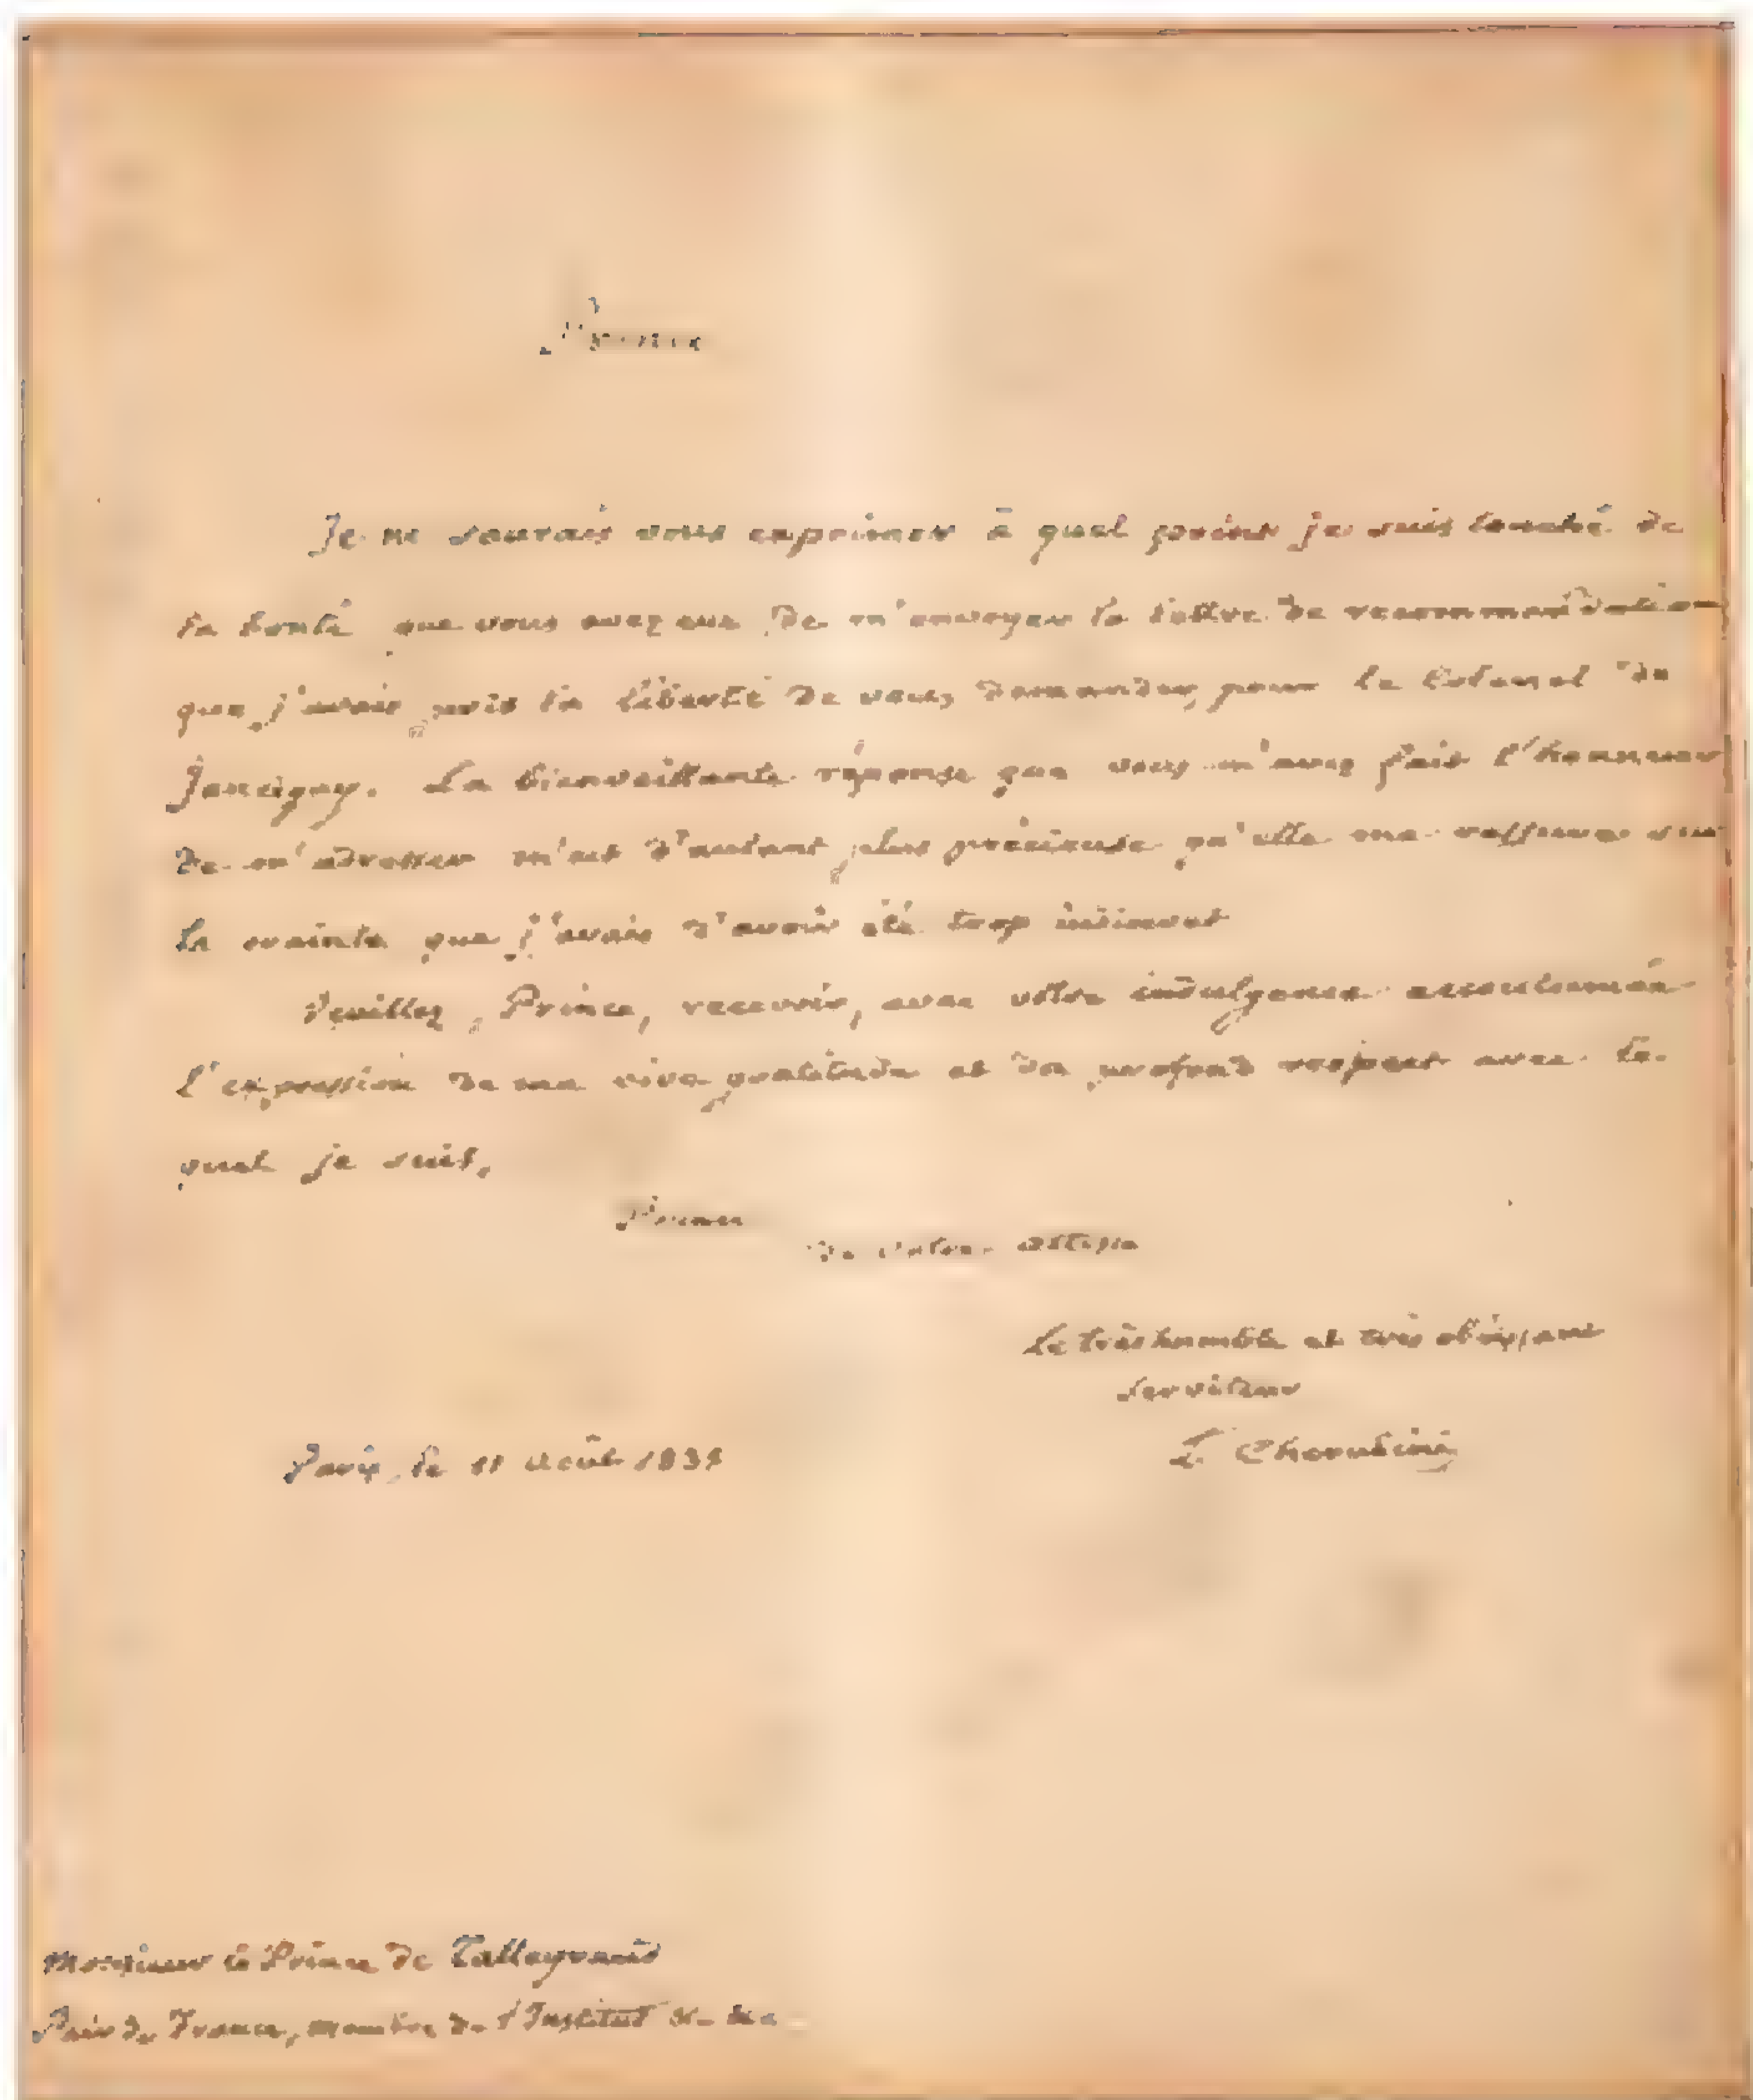 Prince
Je ne saurais vous exprimer à quel point je suis touché de
la bonté que vous avez eue de m'envoyer la lettre de recommandation
que j'avais pris la liberté de vous demander, pour le Colonel de
La bienveillante réponse que vous m'avez fait l'honneur
de m'adresser m'est d'autant plus précieuse qu'elle me rassure sur
la crainte que j'avais d'avoir été trop indiscret
Veuillez, Prince, recevoir, avec votre indulgence accoutumée
l'expression de ma vive gratitude et du profond respect avec le
quel je suis,
Prince
De votre altesse
Le très humble et très obéissant
serviteur
L. Cherubini
Paris, le 11 août
Monsieur le Prince de Talleyrand
Pair de France, membre de l'Institut &c &c